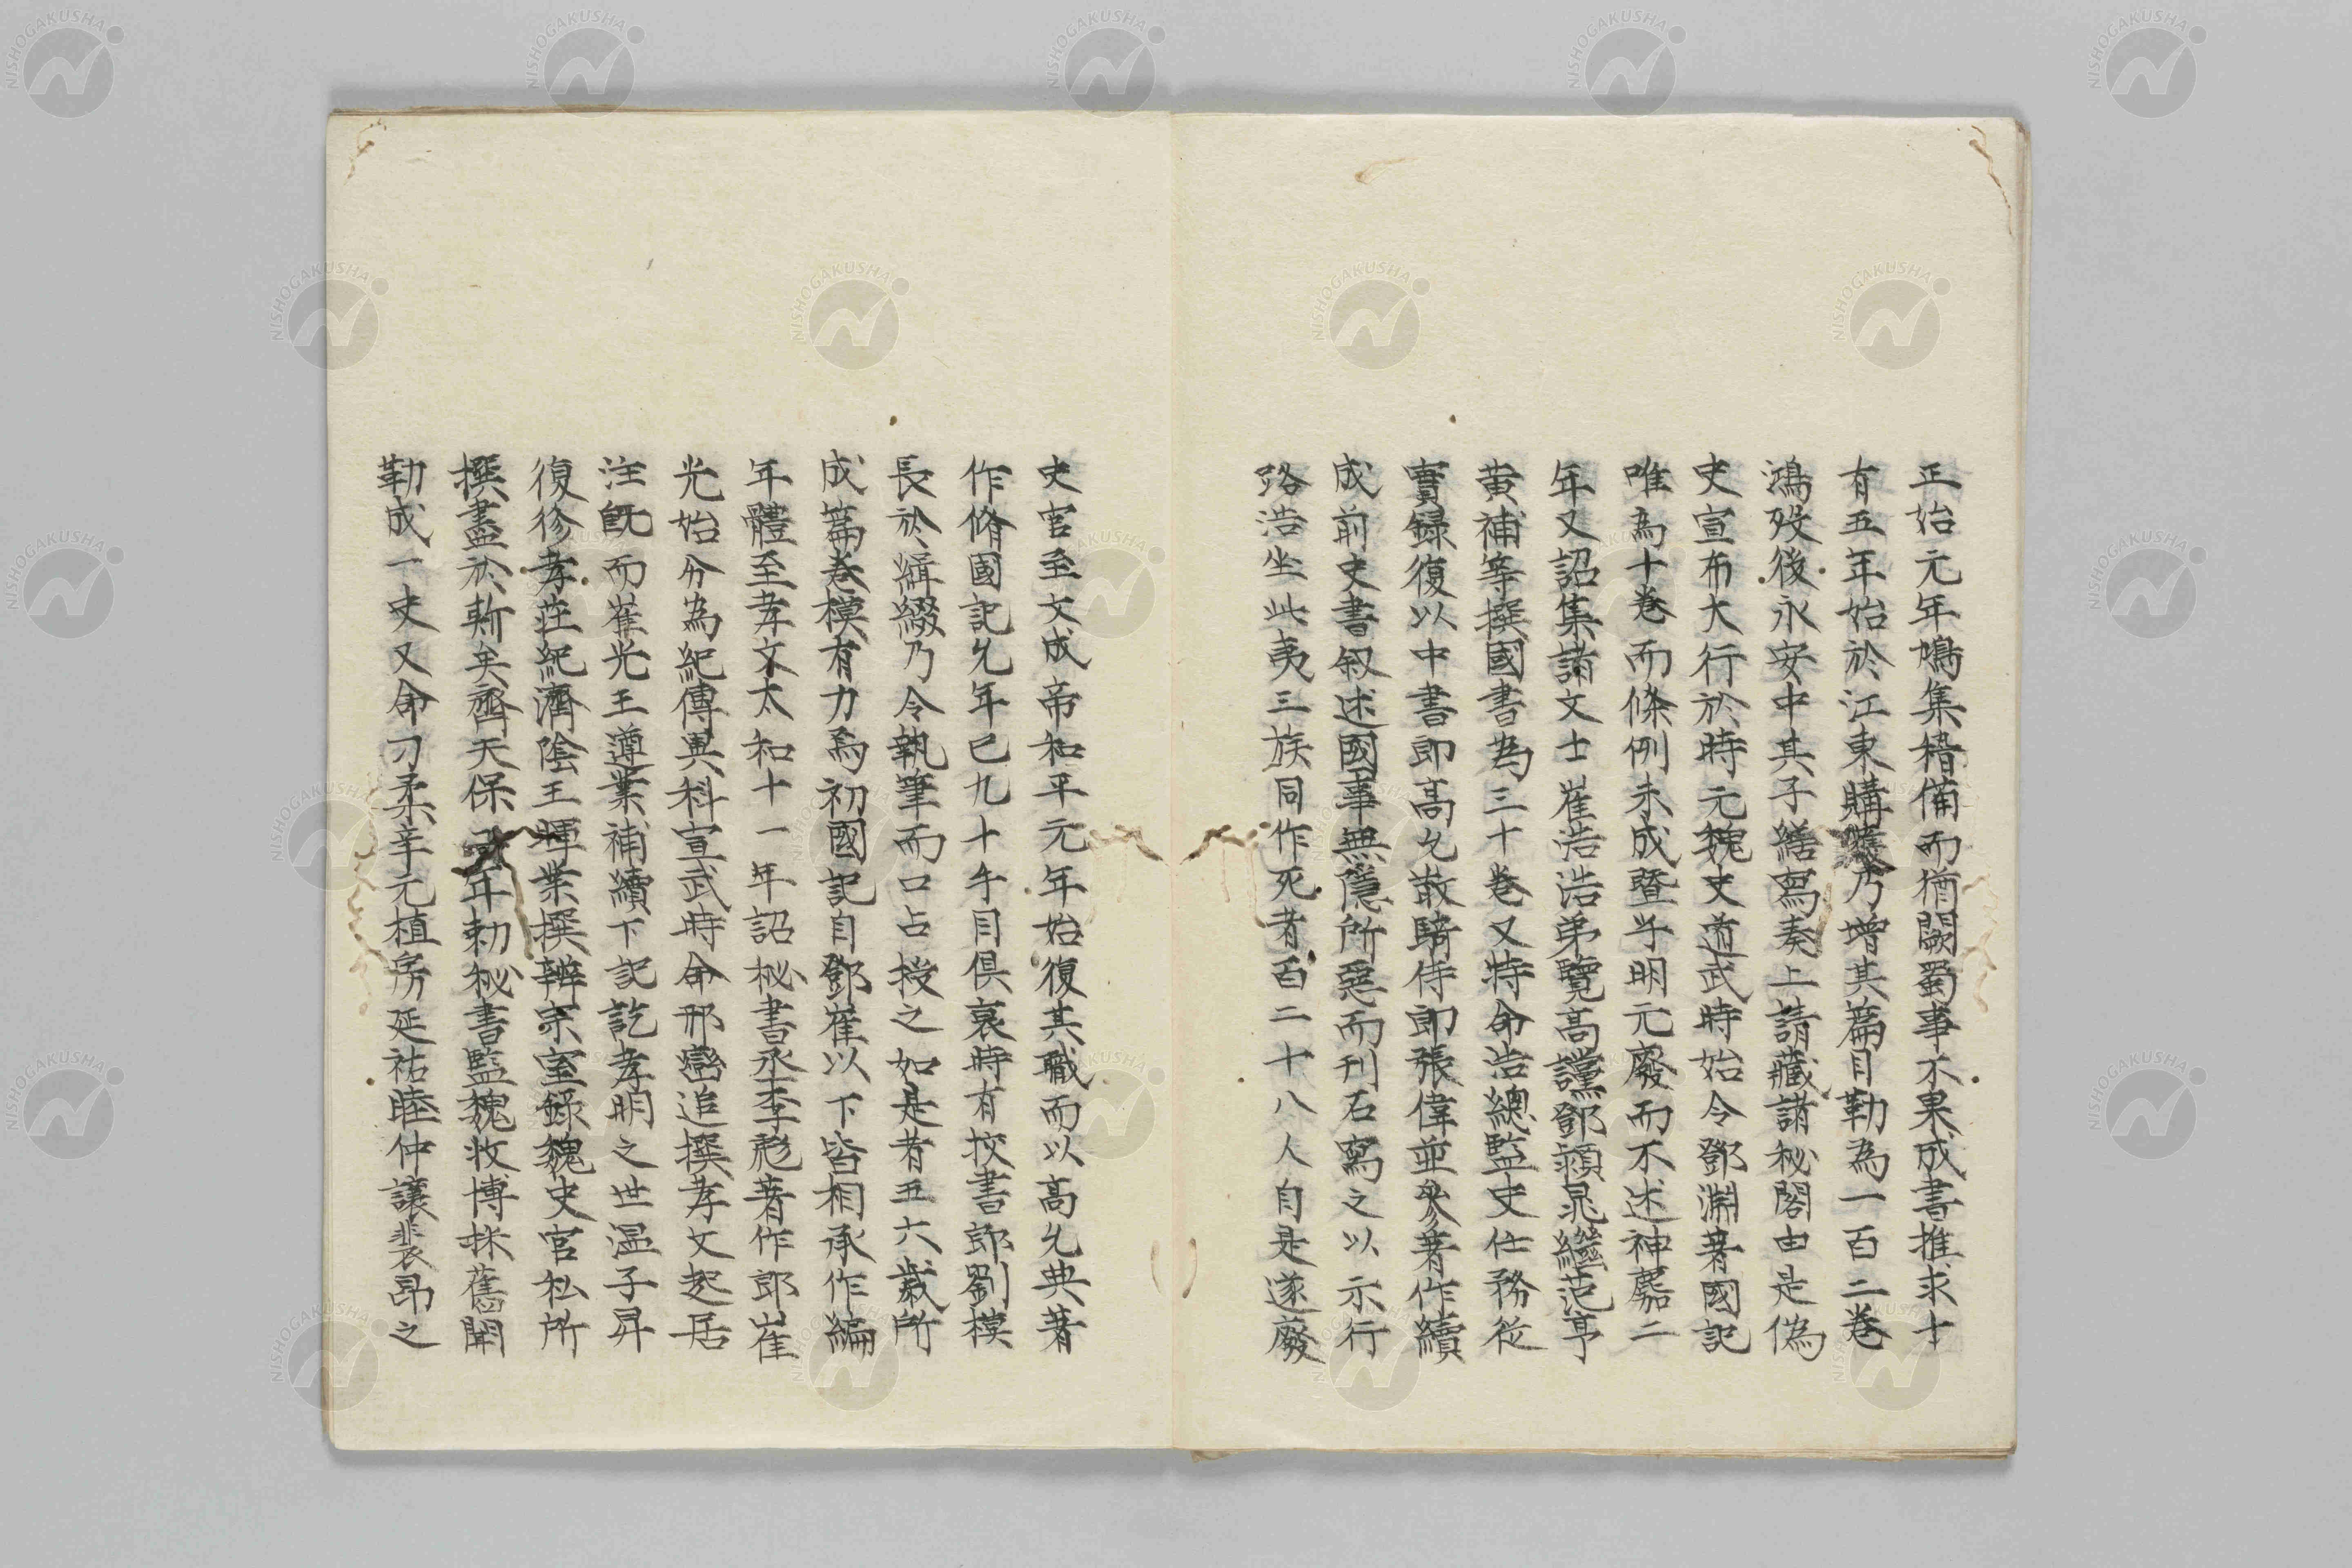 正始元年鳩集稽備而猶闕蜀事不果成書推求十
有五年始於江東購獲乃增其篇目勒為一百二巻
鴻歿後永安中其子繕寫奏上請藏諸秘閣由是偽
史宣布大行於時元魏史道武時始令鄧淵著國記
唯為十巻而條例未成暨乎明元廢而不述神䴥二
年又詔集諸文士崔浩浩弟覽高讜鄧穎晁繼范亨
黄補等撰國書為三十巻又特命浩總監史任務從
實録復以中書郎高允散騎侍郎張偉並參著作續
成前史書叙述國事無隱所惡而刊石寫之以示行
路浩坐此夷三族同作死者百二十八人自是遂廢
史官至文成帝和平元年始復其職而以高允典著
作脩國記允年已九十午目俱衰時有挍書郎劉模
長於緝綴乃令執筆而口占授之如是者五六歲所
成篇巻模有力焉初國記自鄧崔以下皆相承作編
年體至孝文太和十一年詔秘書丞李彪著作郎崔
光始分為紀傳異科宣武時命邢巒追撰孝文起居
注既而崔光王遵業補續下記訖孝明之世温子昇
復修孝莊紀濟陰王暉業撰辨宗室録魏史官私所
撰盡於斯矣齊天保二年勅秘書監魏收博採舊聞
勒成一史又命刁柔辛元植房延祐睦仲讓裴昂之